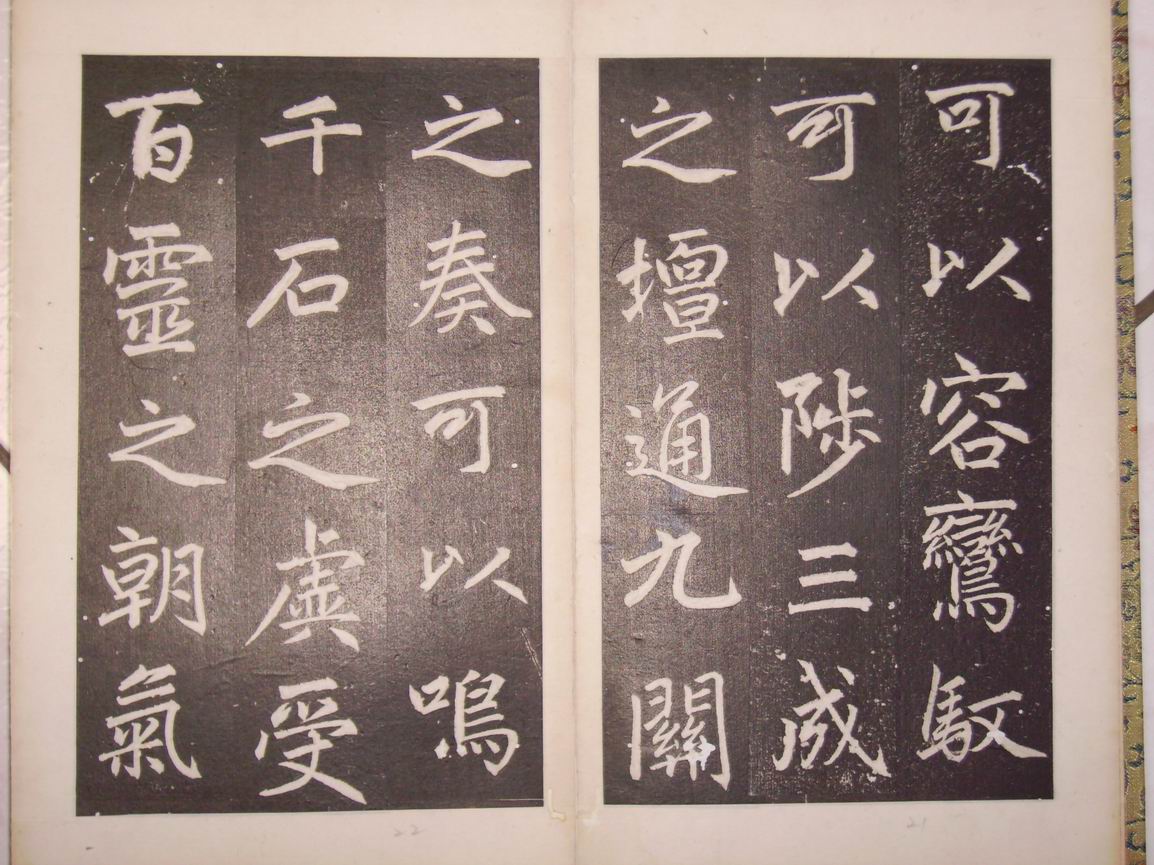 可以容鸞馭
可以陟三成
之壇通九關
之奏可以鳴
千石之虡受
百靈之朝氣
21
22